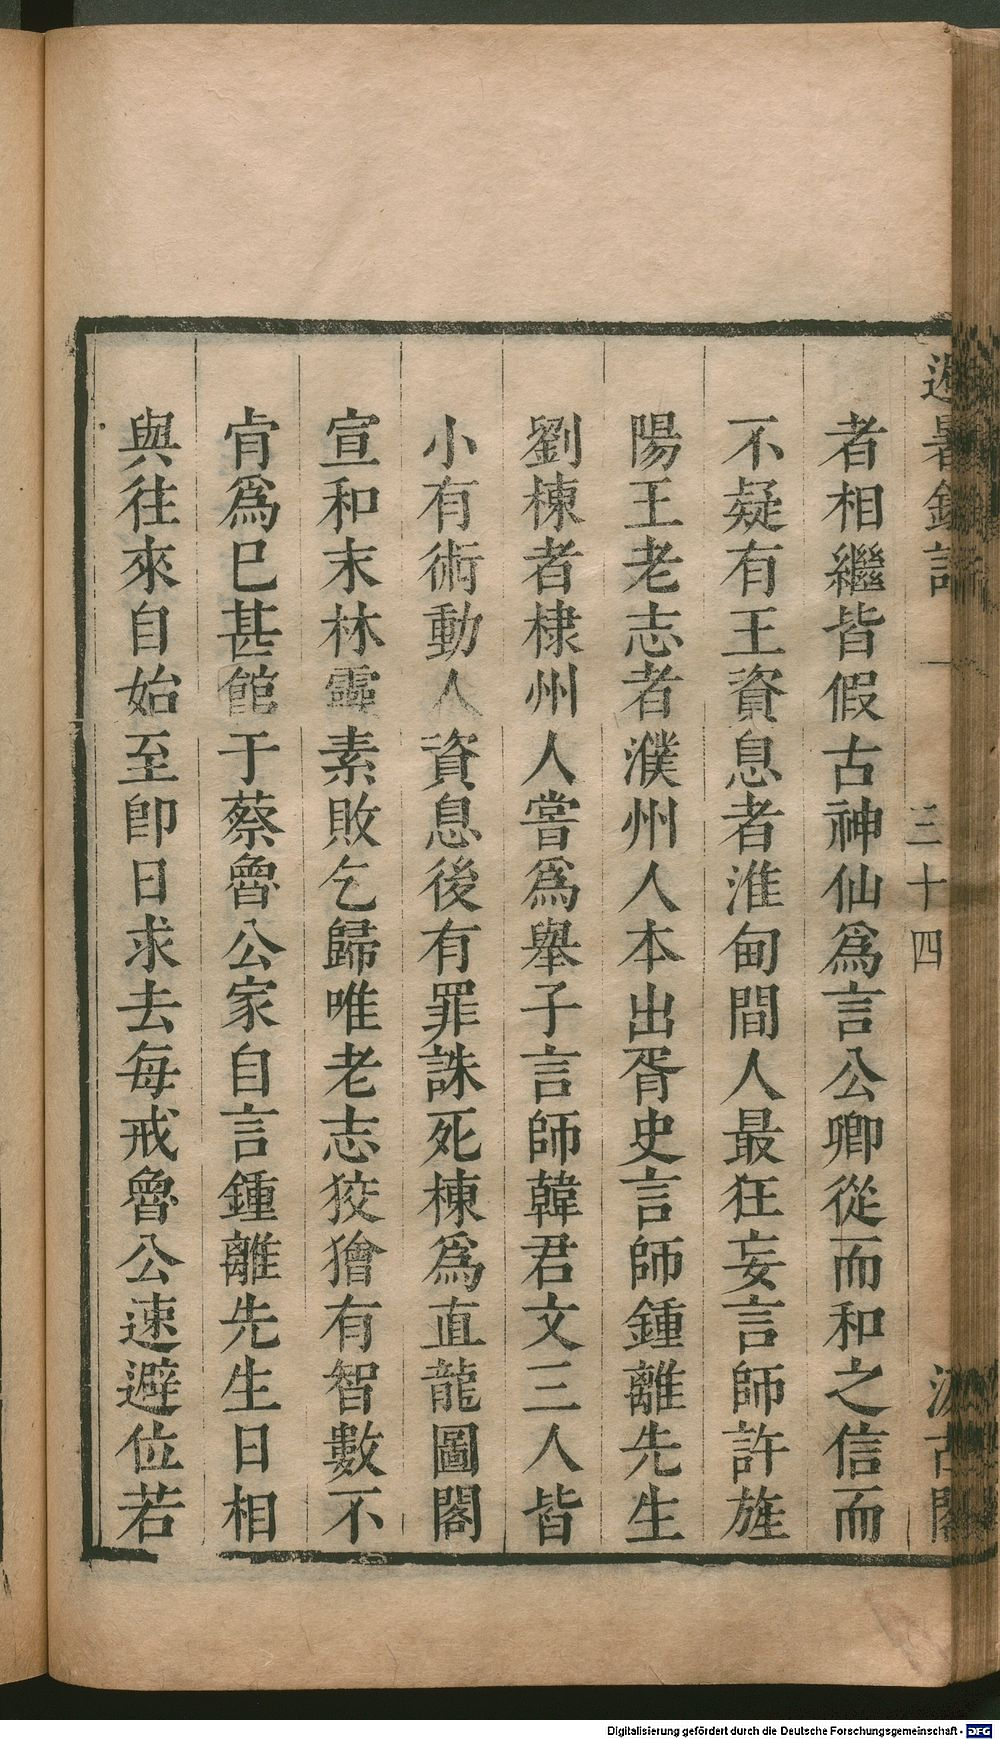 避暑錄話 一 三十四 汲古閣
者相繼皆假古神仙爲言公卿從而和之信而
不疑有王資息者淮甸間人最狂妄言師許旌
陽王老志者濮州人本出胥史言師鍾離先生
劉棟者棣州人嘗爲舉子言師韓君文三人皆
小有術動人資息後有罪誅死棟爲直龍圖閣
宣和末林靈素敗乞歸唯老志狡獪有智數不
肯爲巳甚館于蔡魯公家自言鍾離先生日相
與往來自始至卽日求去每戒魯公速避位若
Digitalisierung gefördert durch die Deutsche Forschungsgemeinschaft - DFG